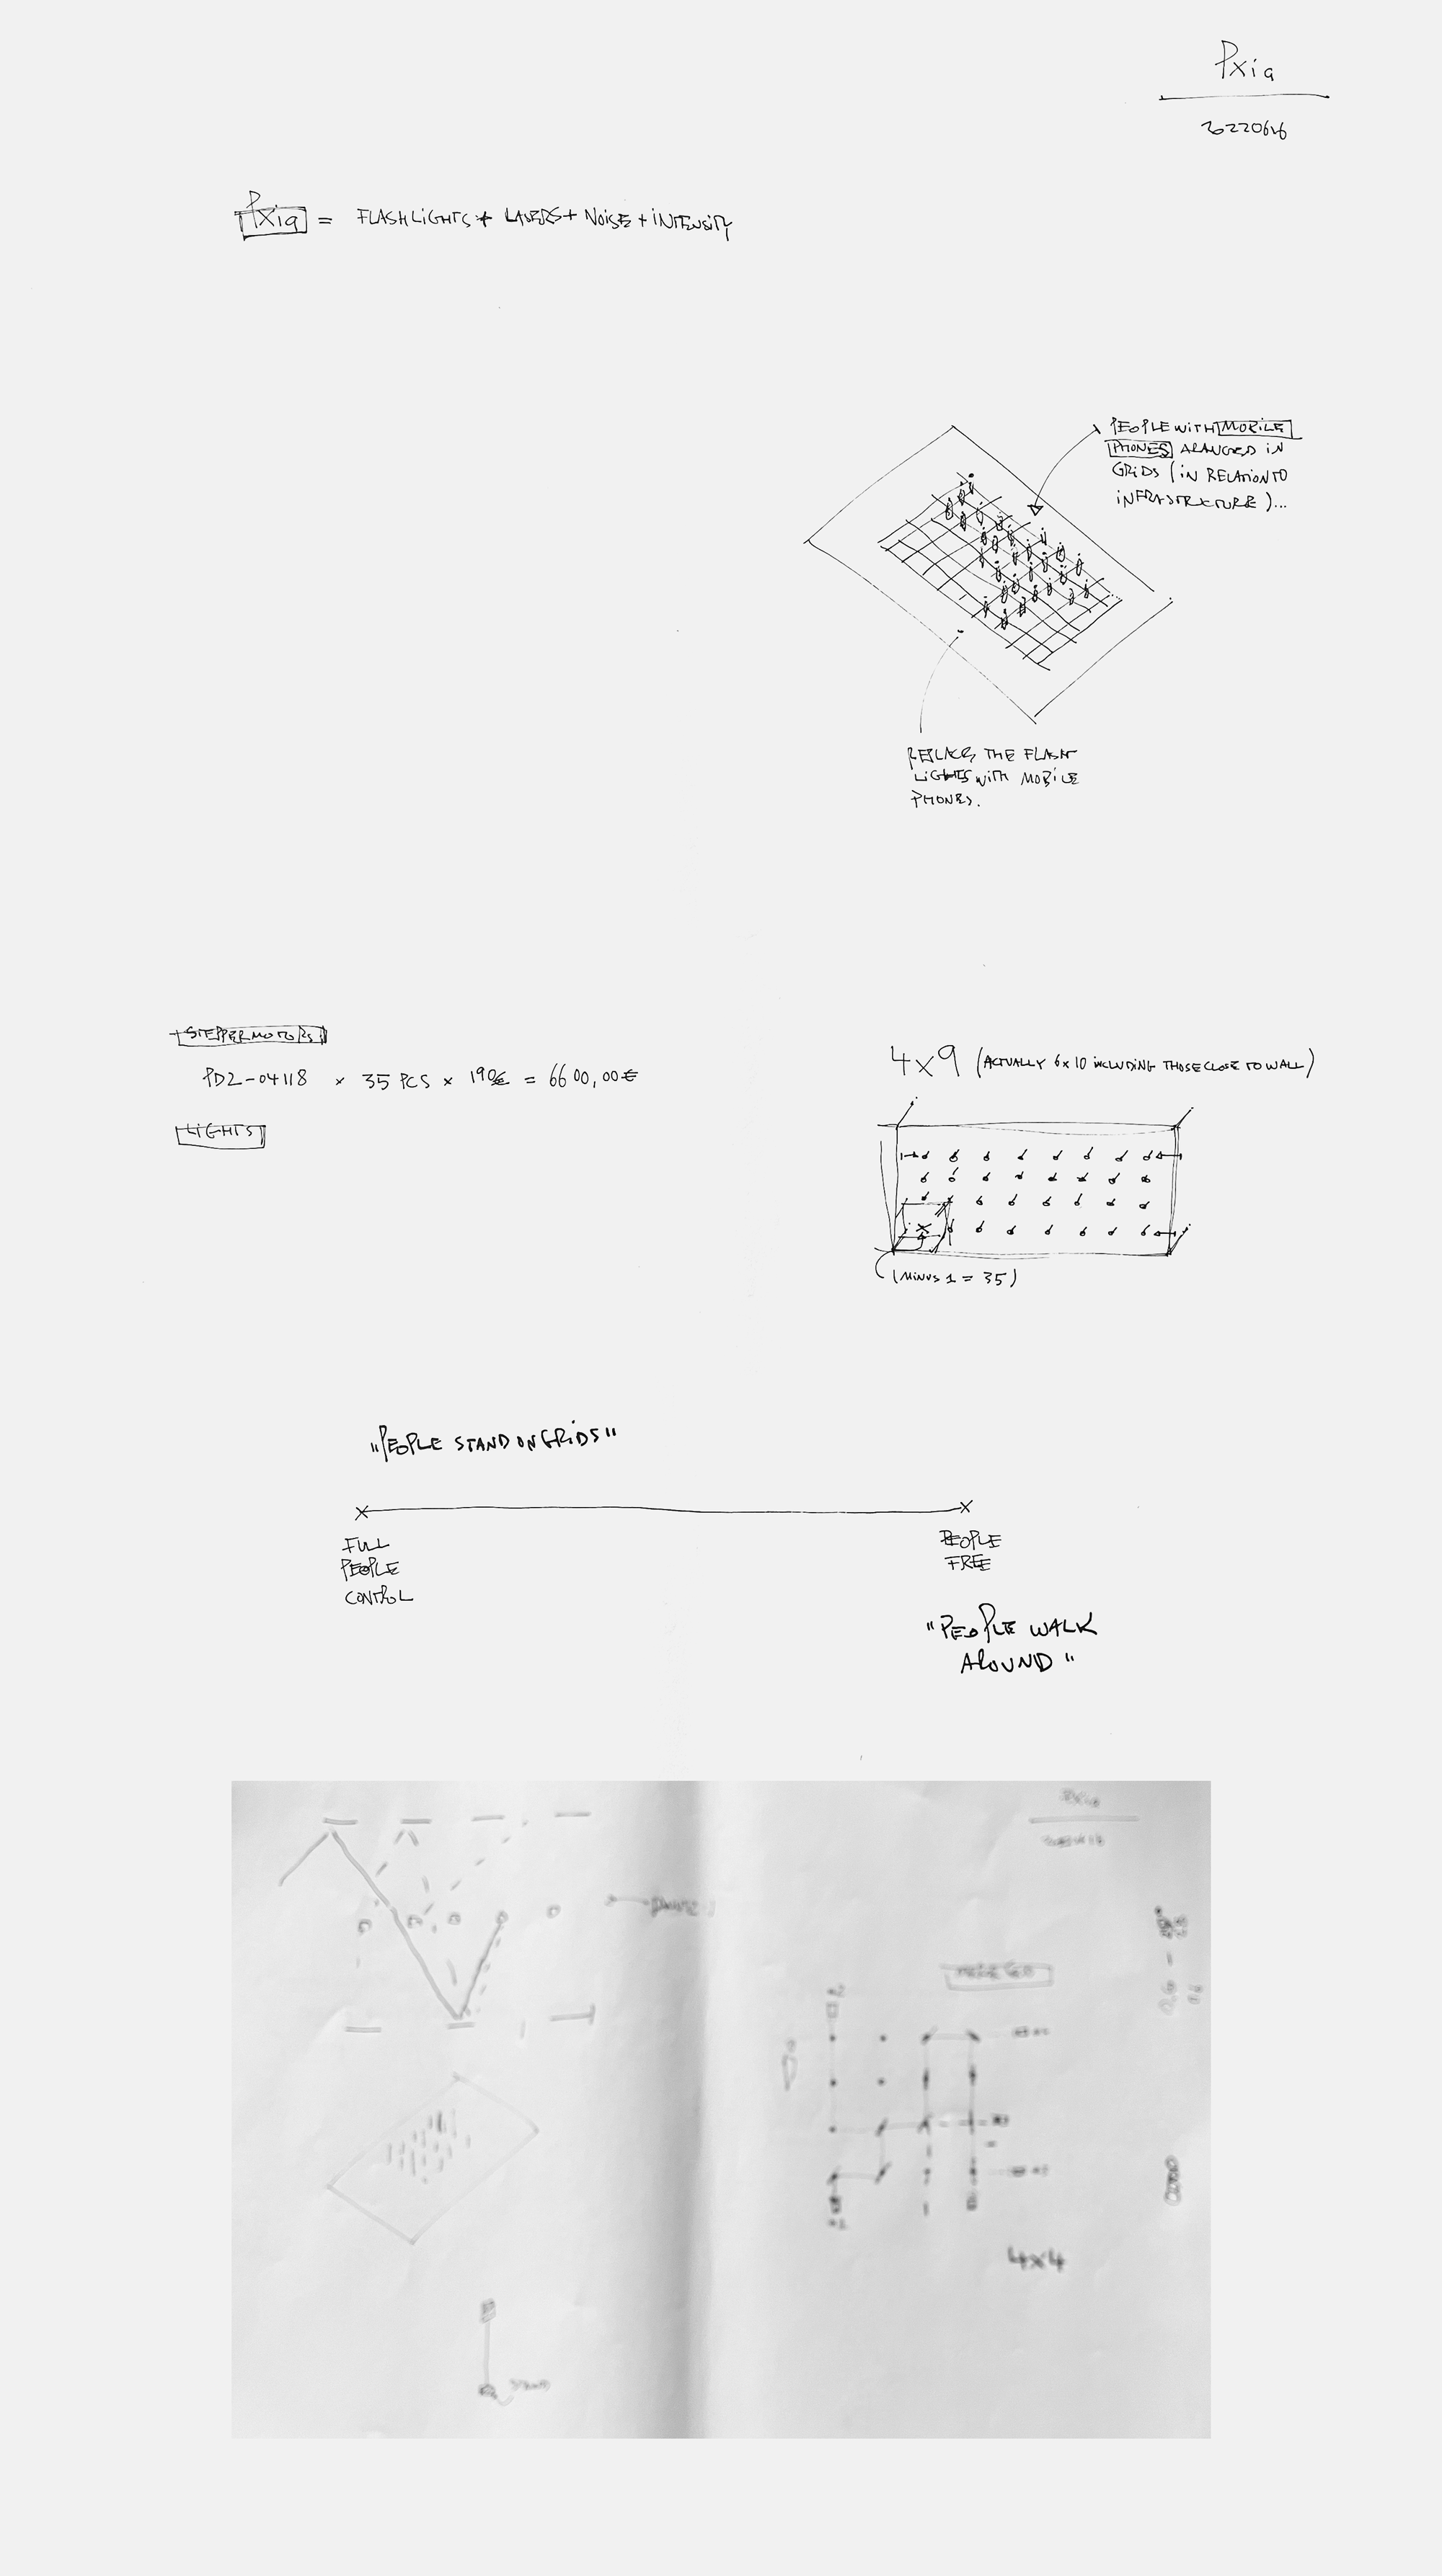 Pxia
20220616
Pxia = FLASHLIGHTS + LASERS + NOISE + INTENSITY
PEOPLE WITH MOBILE
PHONES ARANGED IN
GRIDS (IN RELATION TO
INFRASTRUCTURE)...
REPLACE THE FLASH
LIGHTS WITH MOBILE
PHONES.
STEPPERMOTORS
PD2-04118 × 35 PCS × 190€ = 6600,00€
LIGHTS
4x9 (ACTUALLY 6x10 INCLUDING THOSE CLOSE TO WALL)
(MINUS 1 = 35)
"PEOPLE STAND ON GRIDS"
FULL
PEOPLE
CONTROL
PEOPLE
FREE
"PEOPLE WALK
AROUND"
4x4